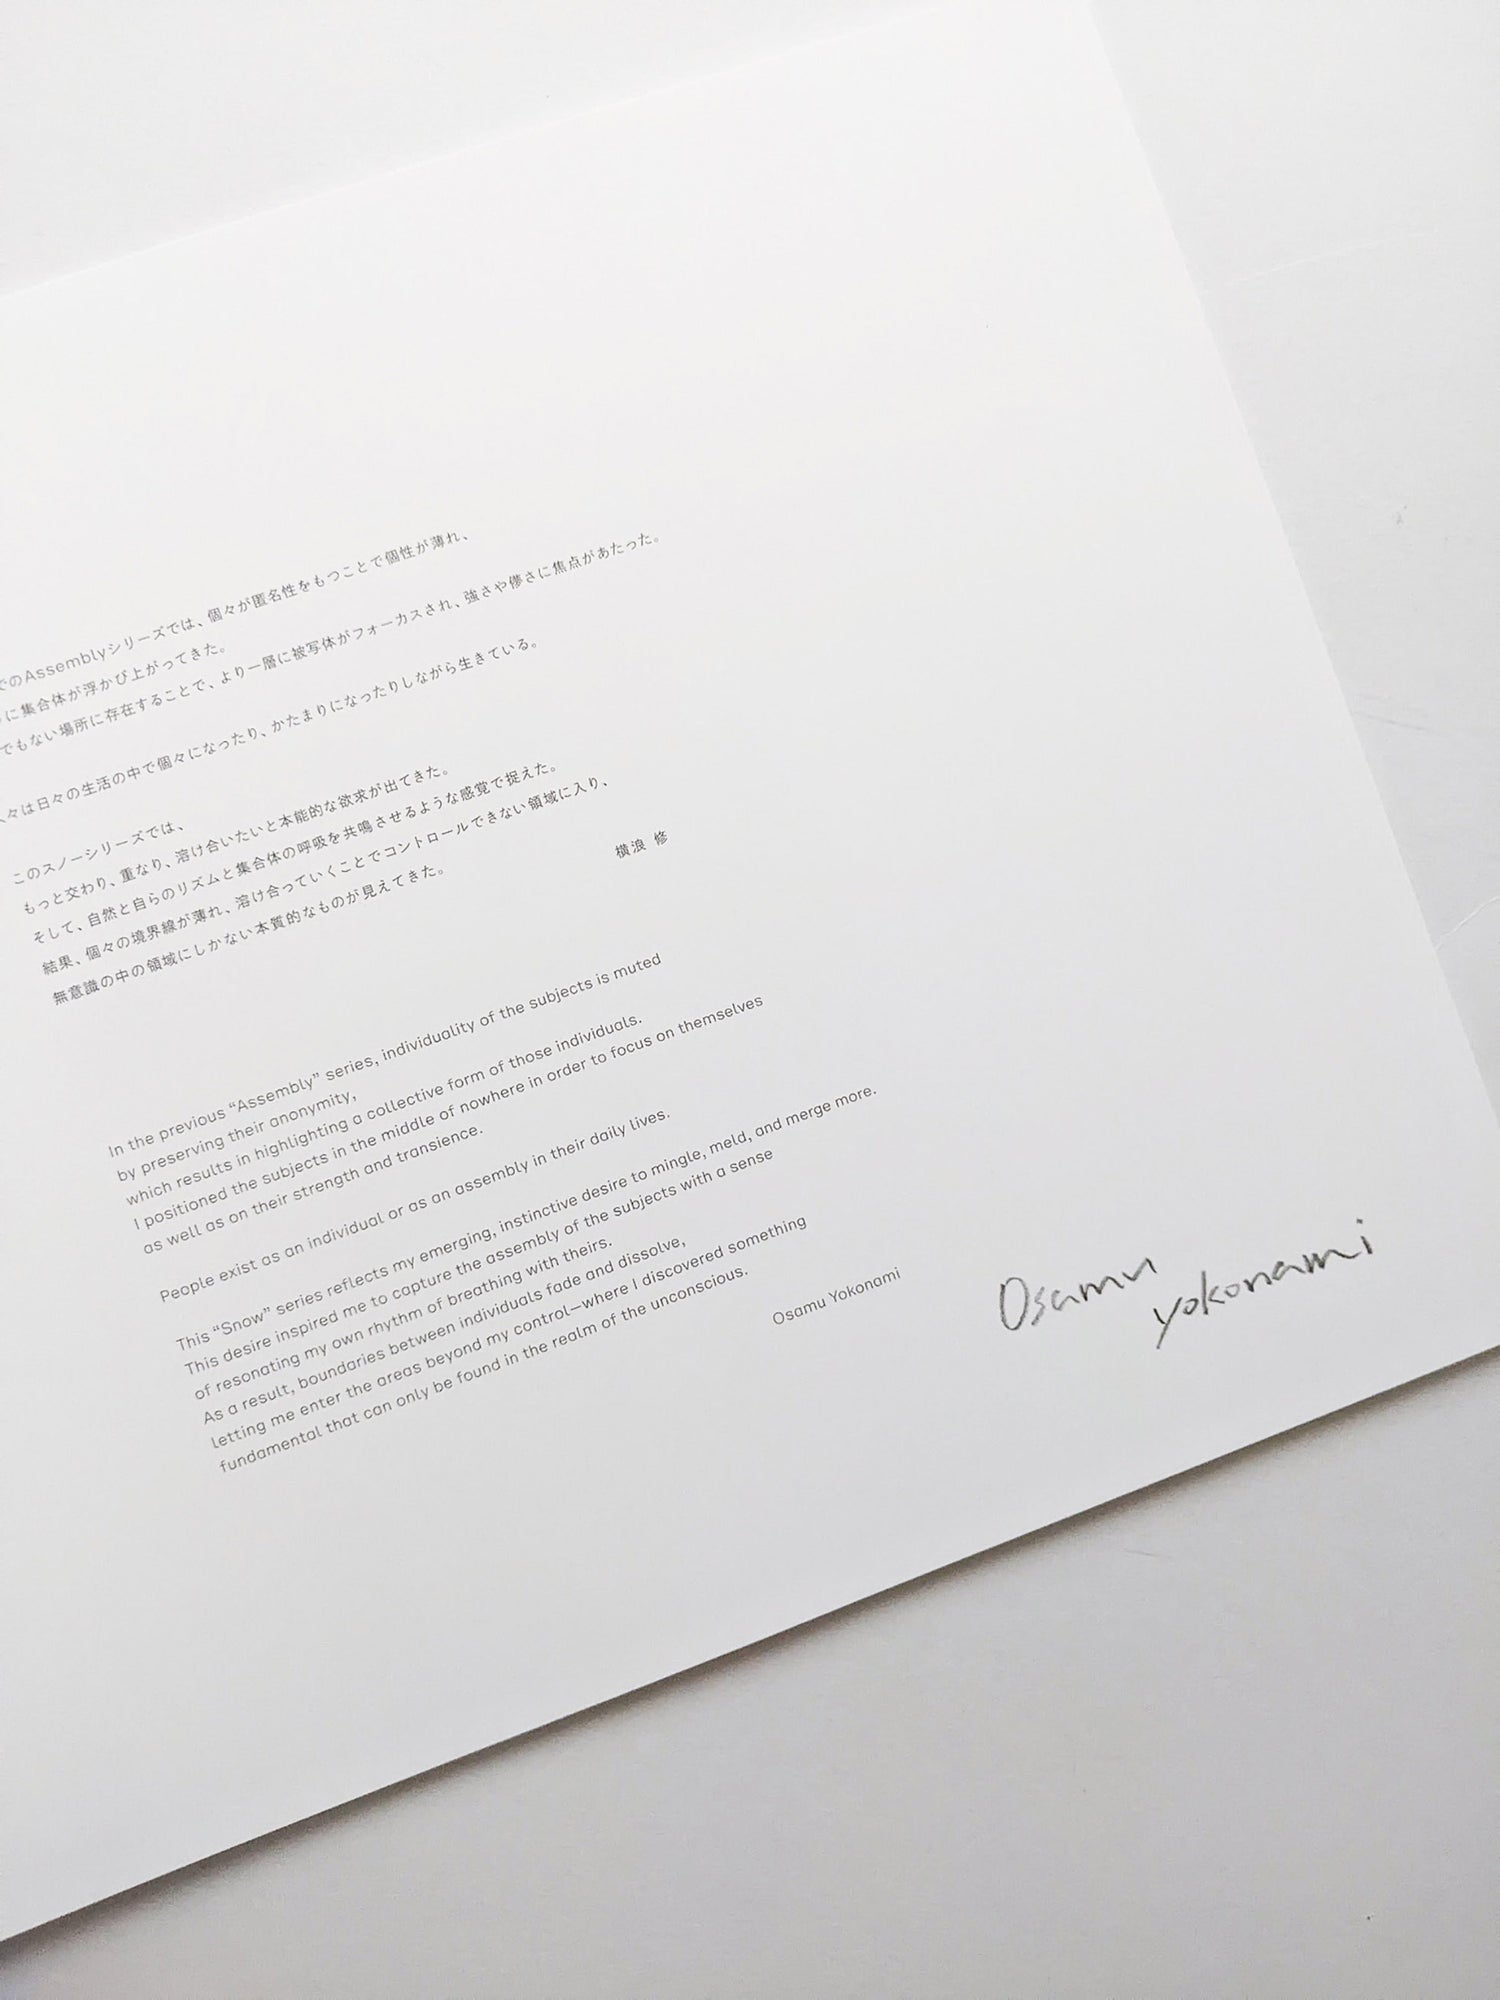 でのAssemblyシリーズでは、個々が匿名性をもつことで個性が薄れ、
に集合体が浮かび上がってきた。
でもない場所に存在することで、より一層に被写体がフォーカスされ、強さや儚さに焦点があたった。
々は日々の生活の中で個々になったり、かたまりになったりしながら生きている。
このスノーシリーズでは、
もっと交わり、重なり、溶け合いたいと本能的な欲求が出てきた。
そして、自然と自らのリズムと集合体の呼吸を共鳴させるような感覚で捉えた。
結果、個々の境界線が薄れ、溶け合っていくことでコントロールできない領域に入り、
無意識の中の領域にしかない本質的なものが見えてきた。
横浪 修
In the previous “Assembly” series, individuality of the subjects is muted
by preserving their anonymity,
which results in highlighting a collective form of those individuals.
I positioned the subjects in the middle of nowhere in order to focus on themselves
as well as on their strength and transience.
People exist as an individual or as an assembly in their daily lives.
This “Snow” series reflects my emerging, instinctive desire to mingle, meld, and merge more.
This desire inspired me to capture the assembly of the subjects with a sense
of resonating my own rhythm of breathing with theirs.
As a result, boundaries between individuals fade and dissolve,
letting me enter the areas beyond my control—where I discovered something
fundamental that can only be found in the realm of the unconscious.
Osamu Yokonami
Osamu
yokonami